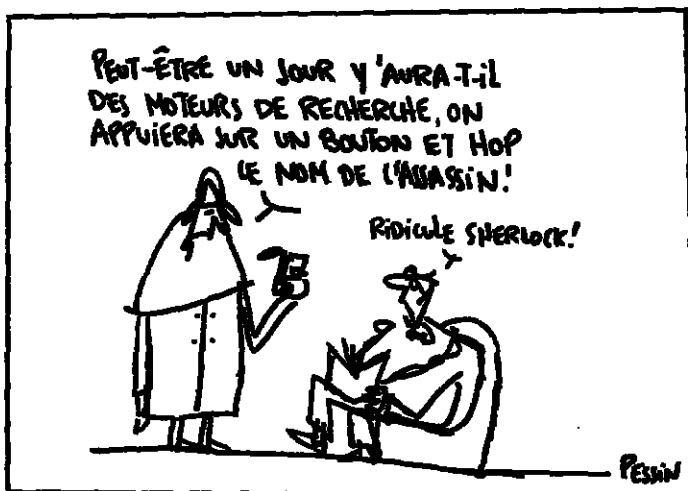 PEUT-ÊTRE UN JOUR Y'AURA-T-iL
DES MOTEURS DE RECHERCHE, ON
APPUiERA SUR UN BOUTON ET HOP
LE NOM DE L'ASSASSiN!
RiDiCULE SHERLOCK!
PESSiN